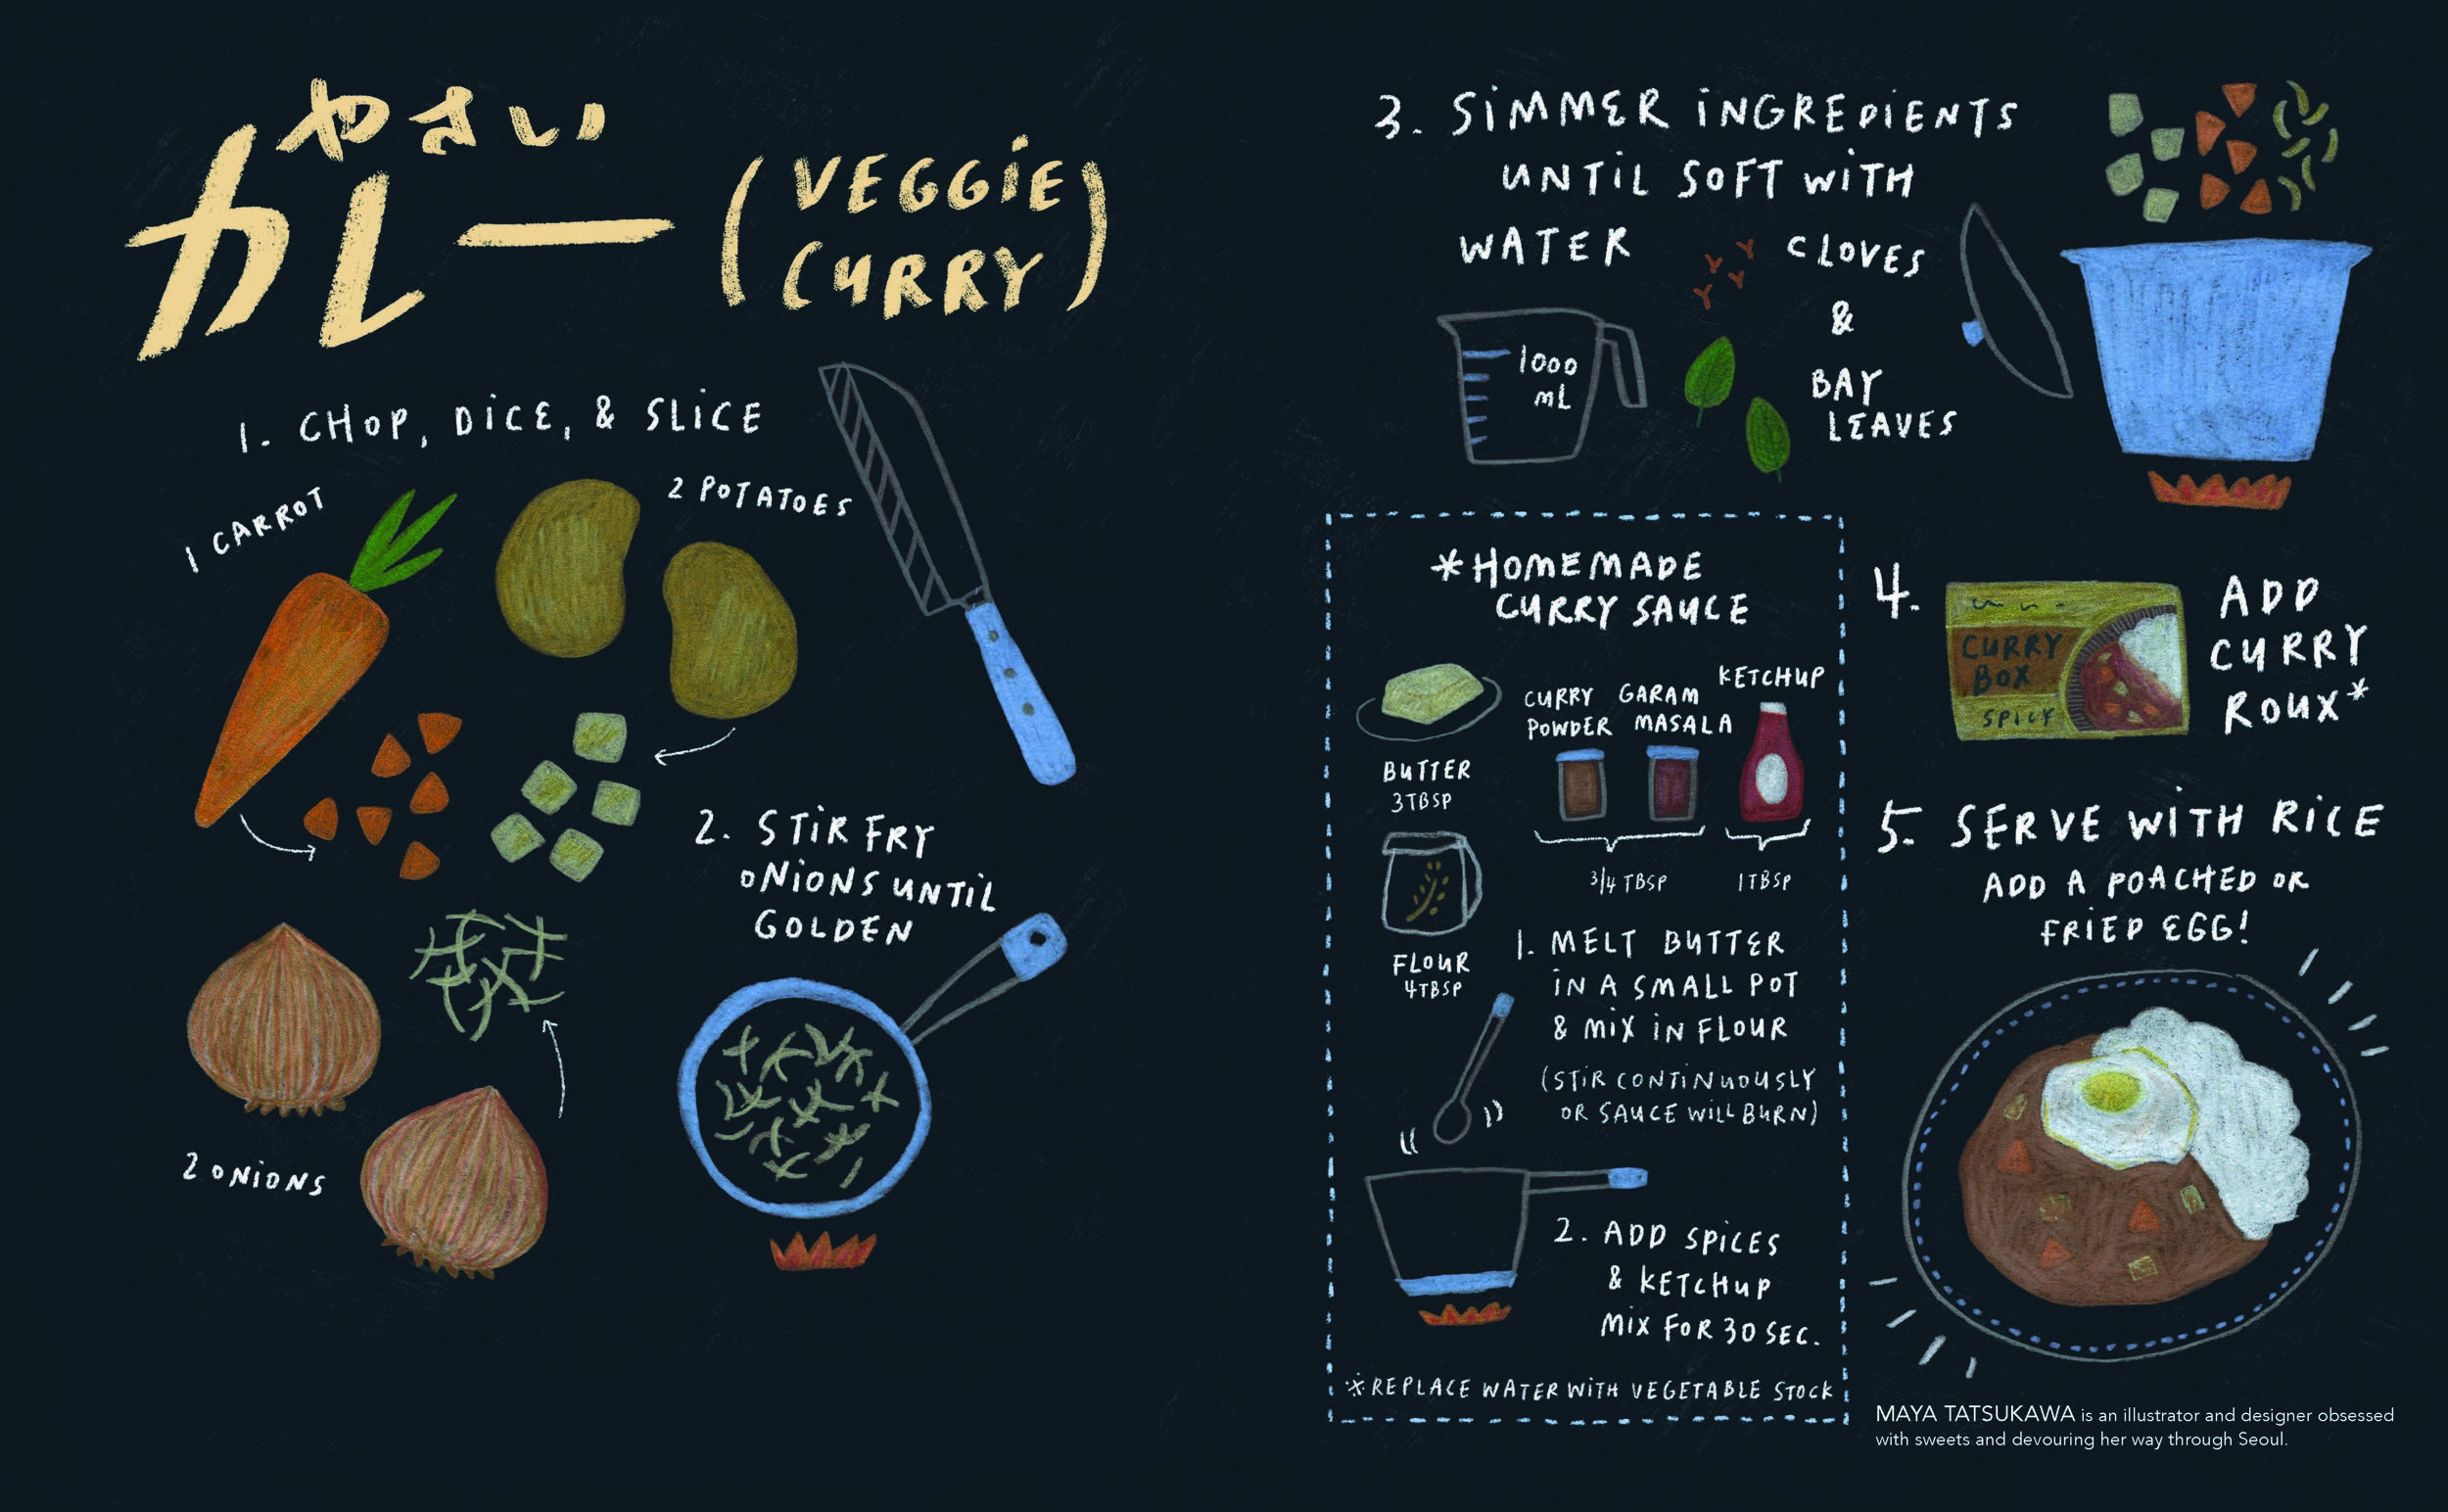 やさい
カレー
(VEGGiE
CURRY)
1. CHOP, DiCE, & SLiCE
1 CARROT
2 POTATOES
2. STiR FRY
ONiONS UNTiL
GOLDEN
2 ONiONS
3. SiMMER iNGREDiENTS
UNTiL SOFT WiTH
WATER
CLOVES
&
BAY
LEAVES
1000
mL
*HOMEMADE
CURRY SAUCE
BUTTER
3TBSP
CURRY
POWDER
GARAM
MASALA
KETCHUP
3/4 TBSP
1TBSP
FLOUR
4TBSP
1. MELT BUTTER
iN A SMALL POT
& MiX iN FLOUR
(STiR CONTiNUOUSLY
OR SAUCE WiLL BURN)
2. ADD SPiCES
& KETCHUP
MiX FOR 30 SEC.
*REPLACE WATER WiTH VEGETABLE STOCK
4.
CURRY
BOX
SPICY
ADD
CURRY
ROUX*
5. SERVE WiTH RiCE
ADD A POACHED OR
FRiED EGG!
MAYA TATSUKAWA is an illustrator and designer obsessed
with sweets and devouring her way through Seoul.